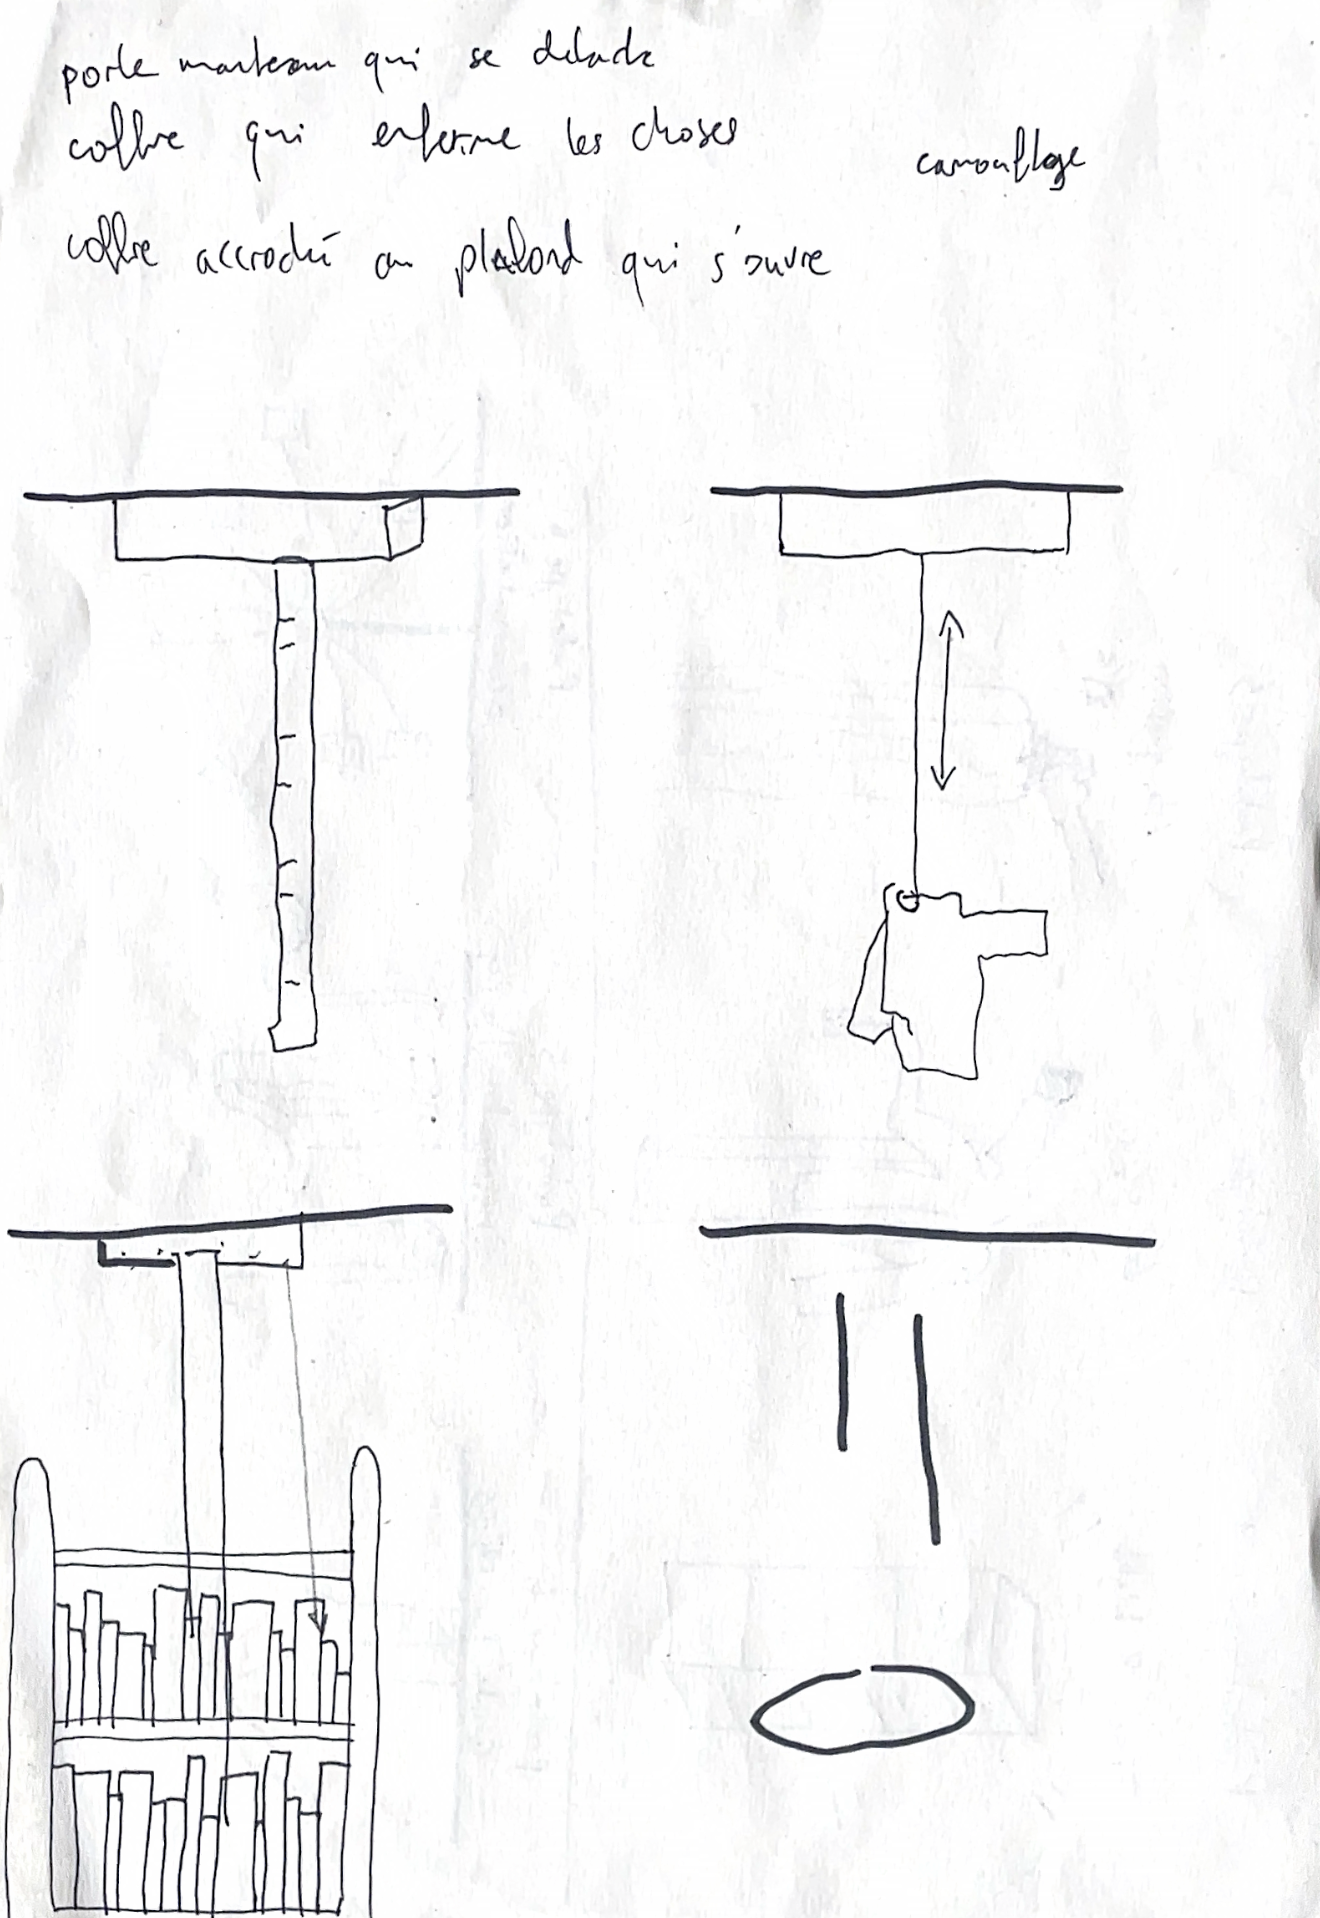 porte manteau qui se détache
coffre qui enferme les choses
camouflage
coffre accroché au plafond qui s'ouvre